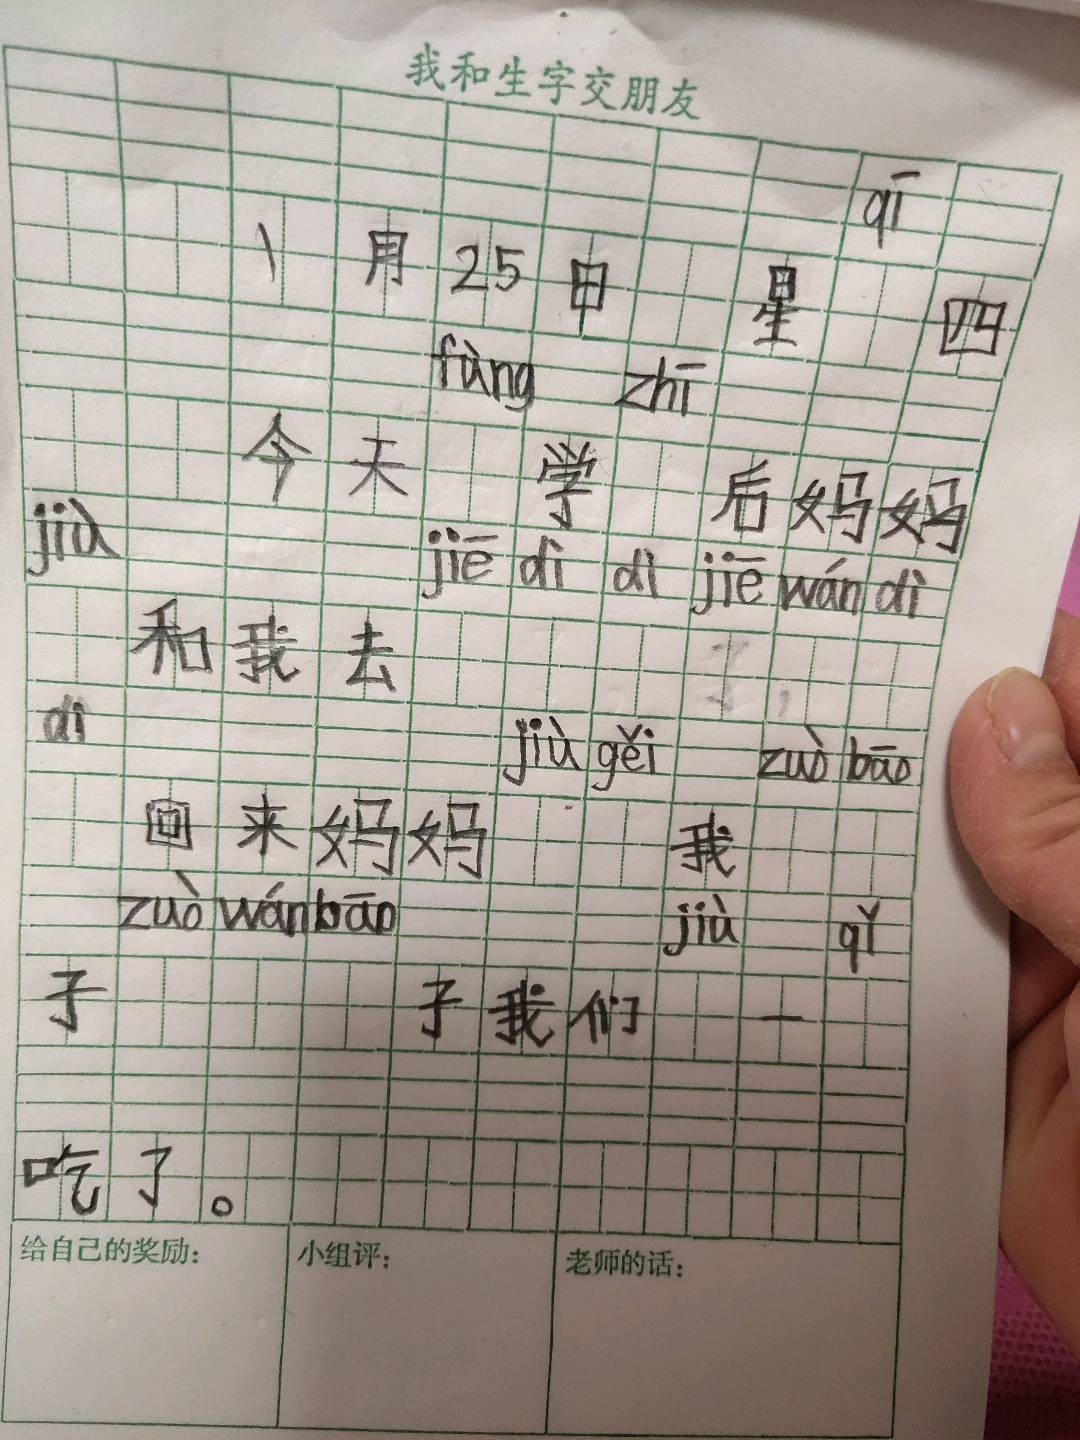 我和生字交朋友
qī
1月25日 星 四
fàng zhī
今天 学 后妈妈
jiù jiē dì dì jiē wán dì
和我去
dì jiù gěi zuò bāo
回来妈妈 我
zuò wán bāo jiù qǐ
子 子我们 一
吃了。
给自己的奖励: 小组评: 老师的话: